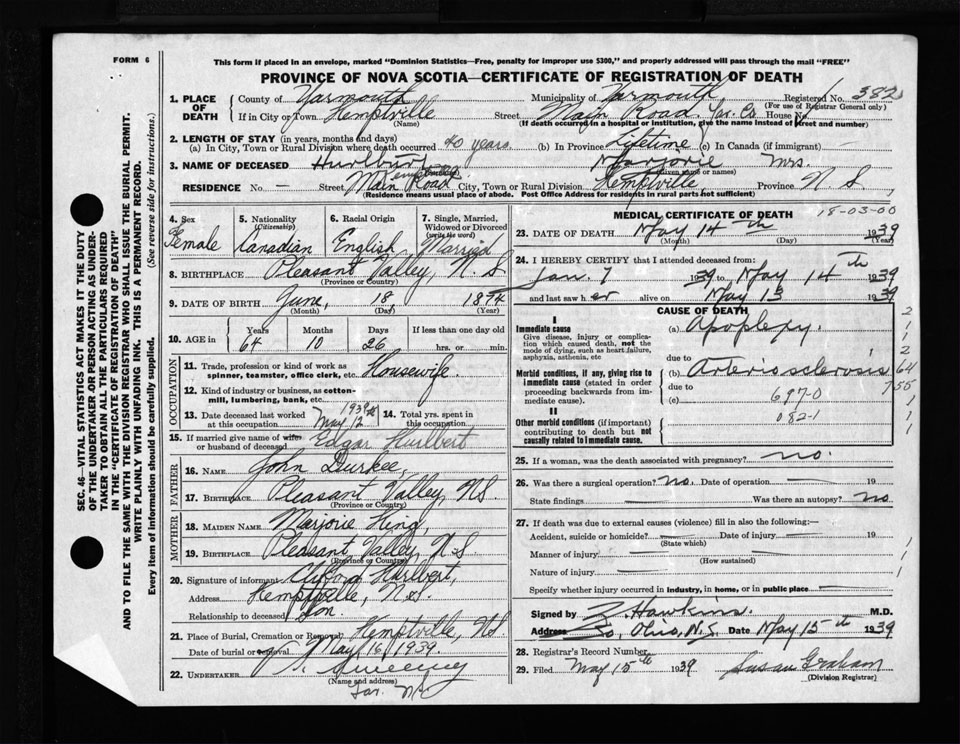 FORM 6
This form if placed in an envelope, marked "Dominion Statistics—Free, penalty for improper use $300," and properly addressed will pass through the mail "FREE"
PROVINCE OF NOVA SCOTIA—CERTIFICATE OF REGISTRATION OF DEATH
1. PLACE OF DEATH County of Yarmouth Municipality of Yarmouth Registered No. 382
(For use of Registrar General only)
If in City or Town Kemptville Street Main Road Yar. Co. House No.
(Name) (If death occurred in a hospital or institution, give the name instead of street and number)
2. LENGTH OF STAY (in years, months and days)
(a) In City, Town or Rural Division where death occurred 40 years. (b) In Province Lifetime (c) In Canada (if immigrant) —
3. NAME OF DECEASED Hurlburt Marjorie Mrs.
(Given name or names)
RESIDENCE No. — Street Main Road City, Town or Rural Division Kemptville, Province N S,
(Residence means usual place of abode. Post Office Address for residents in rural parts not sufficient)
4. Sex Female
5. Nationality (Citizenship) Canadian
6. Racial Origin English
7. Single, Married, Widowed or Divorced (write the word) Married
8. BIRTHPLACE Pleasant Valley, N. S
(Province or Country)
9. DATE OF BIRTH June, 18, 1874
(Month) (Day) (Year)
10. AGE in Years 64 Months 10 Days 26 If less than one day old hrs. or min.
OCCUPATION
11. Trade, profession or kind of work as spinner, teamster, office clerk, etc. Housewife.
12. Kind of industry or business, as cotton-mill, lumbering, bank, etc.
13. Date deceased last worked at this occupation May 12 1939
14. Total yrs. spent in this occupation
15. If married give name of wife or husband of deceased Edgar Hurlbert
FATHER
16. NAME John Durkee,
17. BIRTHPLACE Pleasant Valley, NS.
(Province or Country)
MOTHER
18. MAIDEN NAME Marjorie King,
19. BIRTHPLACE Pleasant Valley, N.S
(Province or Country)
20. Signature of informant Clifford Hurlbert,
Address Kemptville, N.S.
Relationship to deceased Son.
21. Place of Burial, Cremation or Removal Kemptville, NS
Date of burial or removal May 16, 1939.
22. UNDERTAKER Sweeney
(Name and address)
Yar. NS
MEDICAL CERTIFICATE OF DEATH 18-03-00
23. DATE OF DEATH May 14th 1939
(Month) (Day) (Year)
24. I HEREBY CERTIFY that I attended deceased from:
Jan. 7 1939 to May 14th 1939
and last saw h er alive on May 13 1939
CAUSE OF DEATH
I
Immediate cause
Give disease, injury or complication which caused death, not the mode of dying, such as heart failure, asphyxia, asthenia, etc
(a) Apoplexy.
due to
Morbid conditions, if any, giving rise to immediate cause (stated in order proceeding backwards from immediate cause).
(b) Arteriosclerosis
due to
(c) 697-0
082-1
II
Other morbid conditions (if important) contributing to death but not causally related to immediate cause.
25. If a woman, was the death associated with pregnancy? no.
26. Was there a surgical operation? No. Date of operation — 19
State findings — Was there an autopsy? no
27. If death was due to external causes (violence) fill in also the following:—
Accident, suicide or homicide? — Date of injury — 19
(State which)
Manner of injury —
(How sustained)
Nature of injury —
Specify whether injury occurred in industry, in home, or in public place —
Signed by Z. Hawkins. M.D.
Address So, Ohio, N.S. Date May 15th 1939
28. Registrar's Record Number
29. Filed May 15th 1939 Susan Graham
(Division Registrar)
SEC. 46—VITAL STATISTICS ACT MAKES IT THE DUTY
OF THE UNDERTAKER OR PERSON ACTING AS UNDER-
TAKER TO OBTAIN ALL THE PARTICULARS REQUIRED
IN THE "CERTIFICATE OF REGISTRATION OF DEATH"
AND TO FILE THE SAME WITH THE DIVISION REGISTRAR WHO SHALL ISSUE THE BURIAL PERMIT.
WRITE PLAINLY WITH UNFADING INK. THIS IS A PERMANENT RECORD.
Every item of information should be carefully supplied. (See reverse side for instructions.)